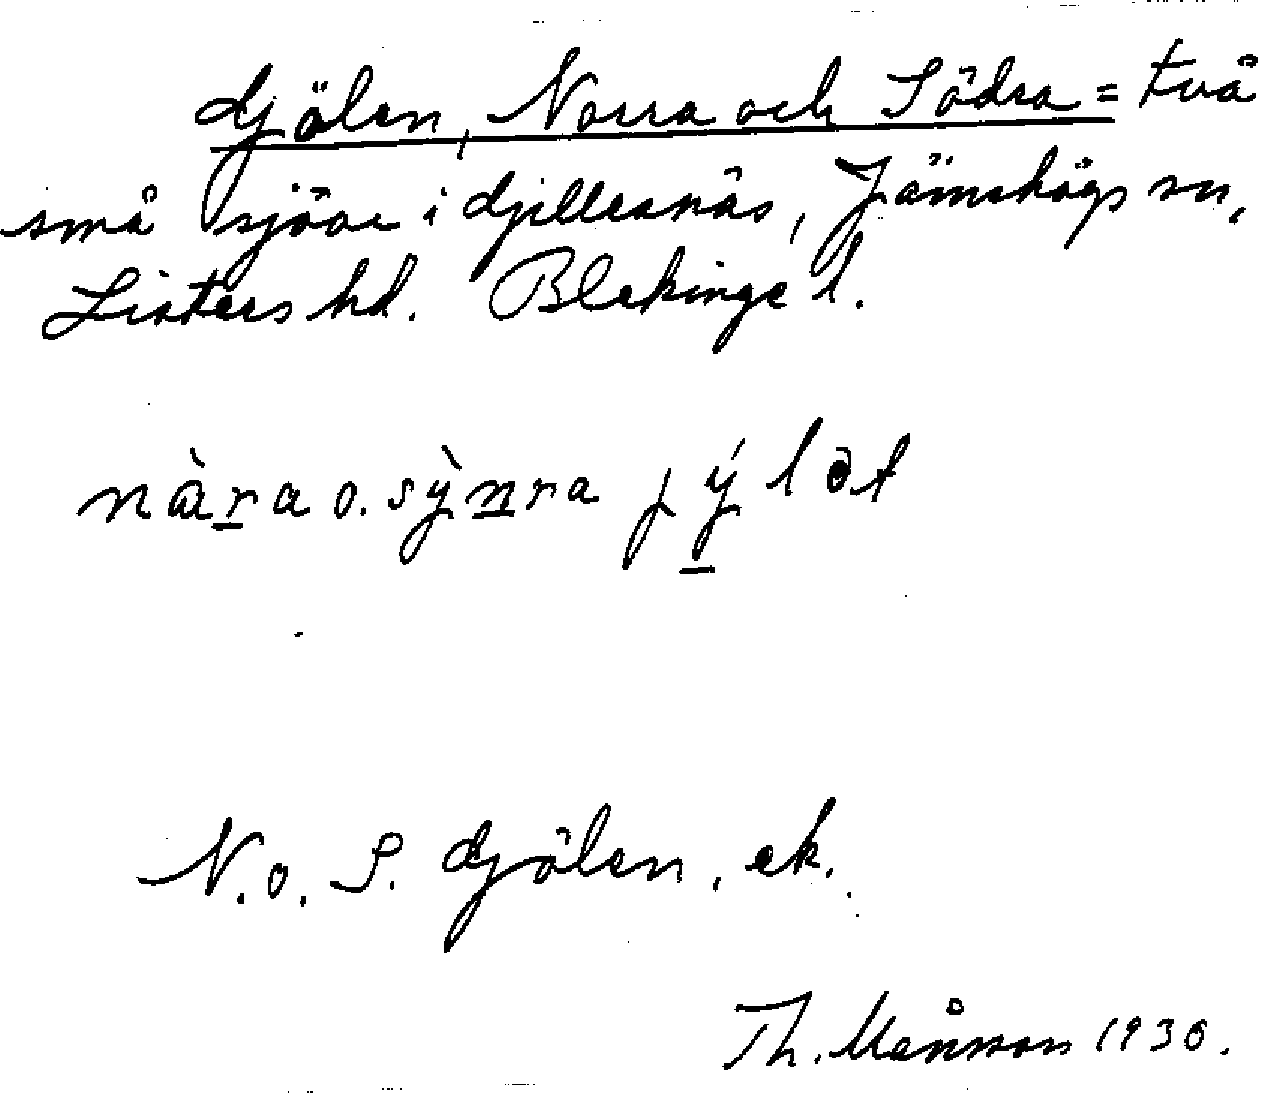 Gjölen, Norra och Södra = två
små sjöar i Gyllesnäs, Jämshögs sn,
Listers hd. Blekinge l.
nàra o. sỳnra jýlət
N. o. S. Gjölen, ek.
Th. Månsson 1930.